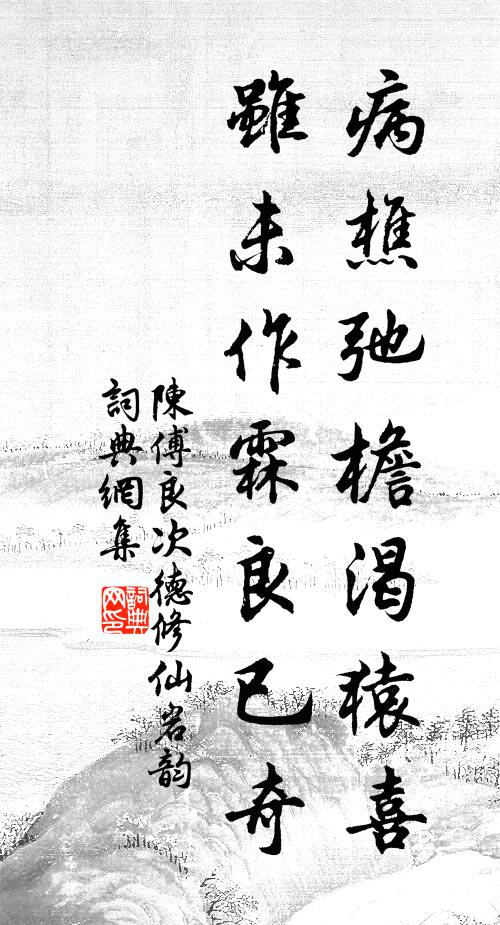 病樵弛檐渴猿喜
雖未作霖良已奇
陳傅良次德修仙岩韵
詞典網集
詞典
网印